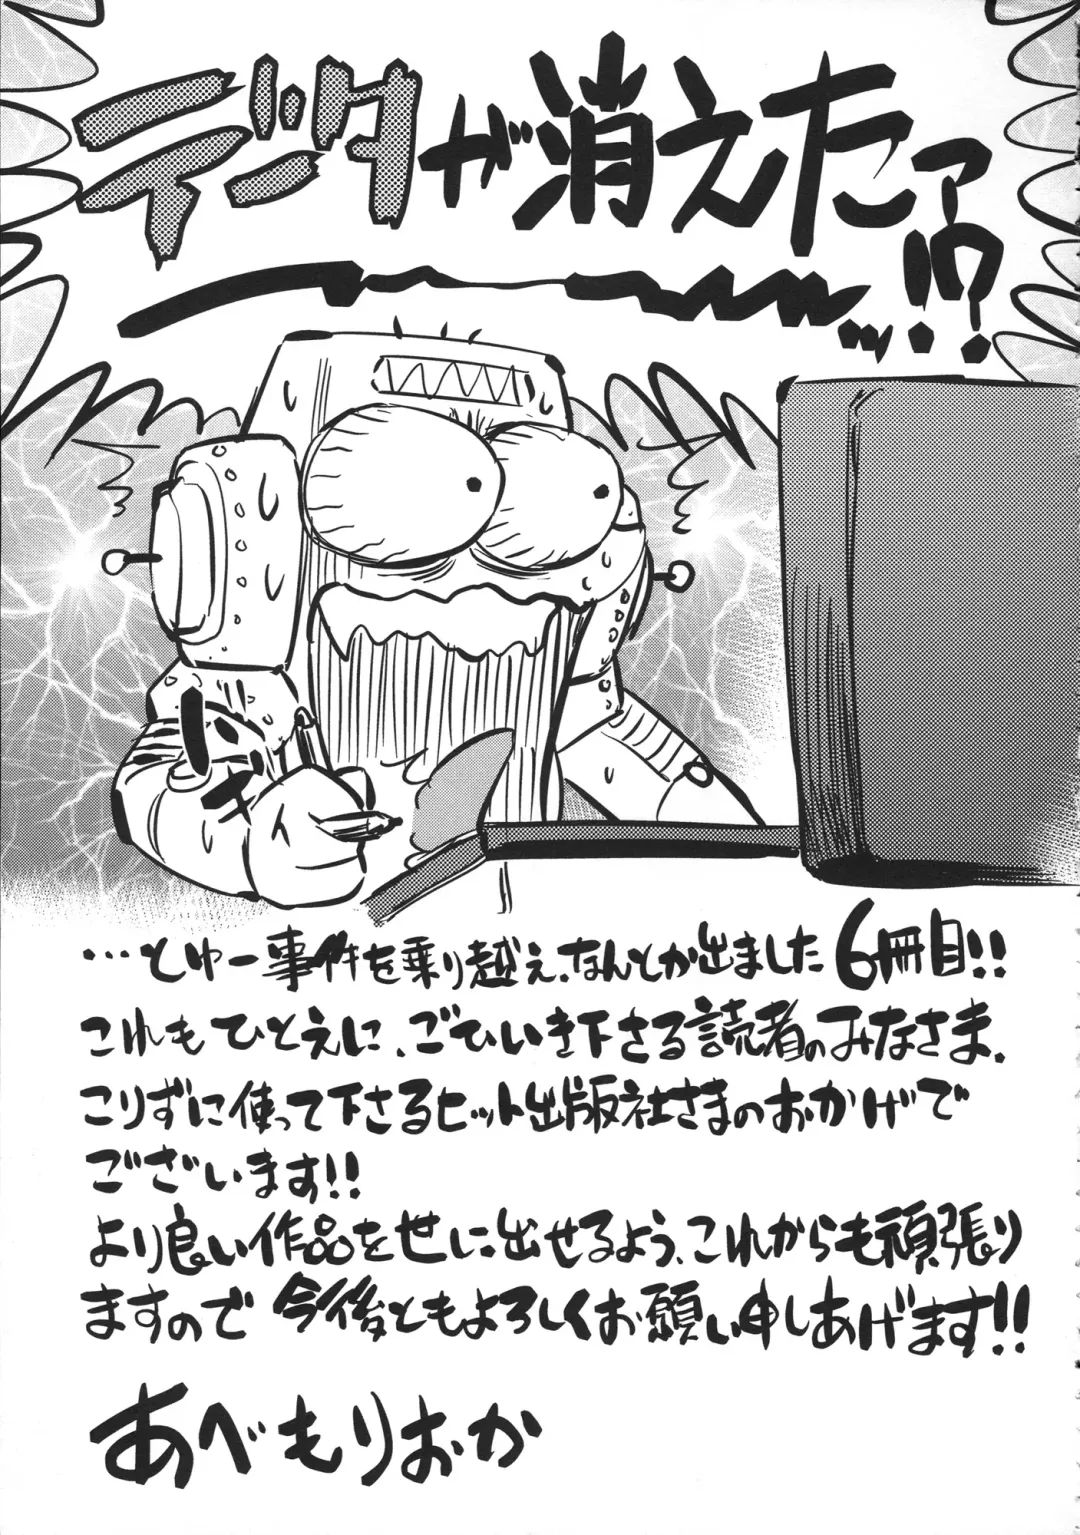 データが消えたァーーーッ!!!?
…とゆー事件を乗り越え、なんとか出ました6冊目!!
これもひとえに、ごひいき下さる読者のみなさま、
こりずに使って下さるヒット出版社さまのおかげで
ございます!!
より良い作品を世に出せるよう、これからも頑張り
ますので今後ともよろしくお願い申しあげます!!
あべもりおか